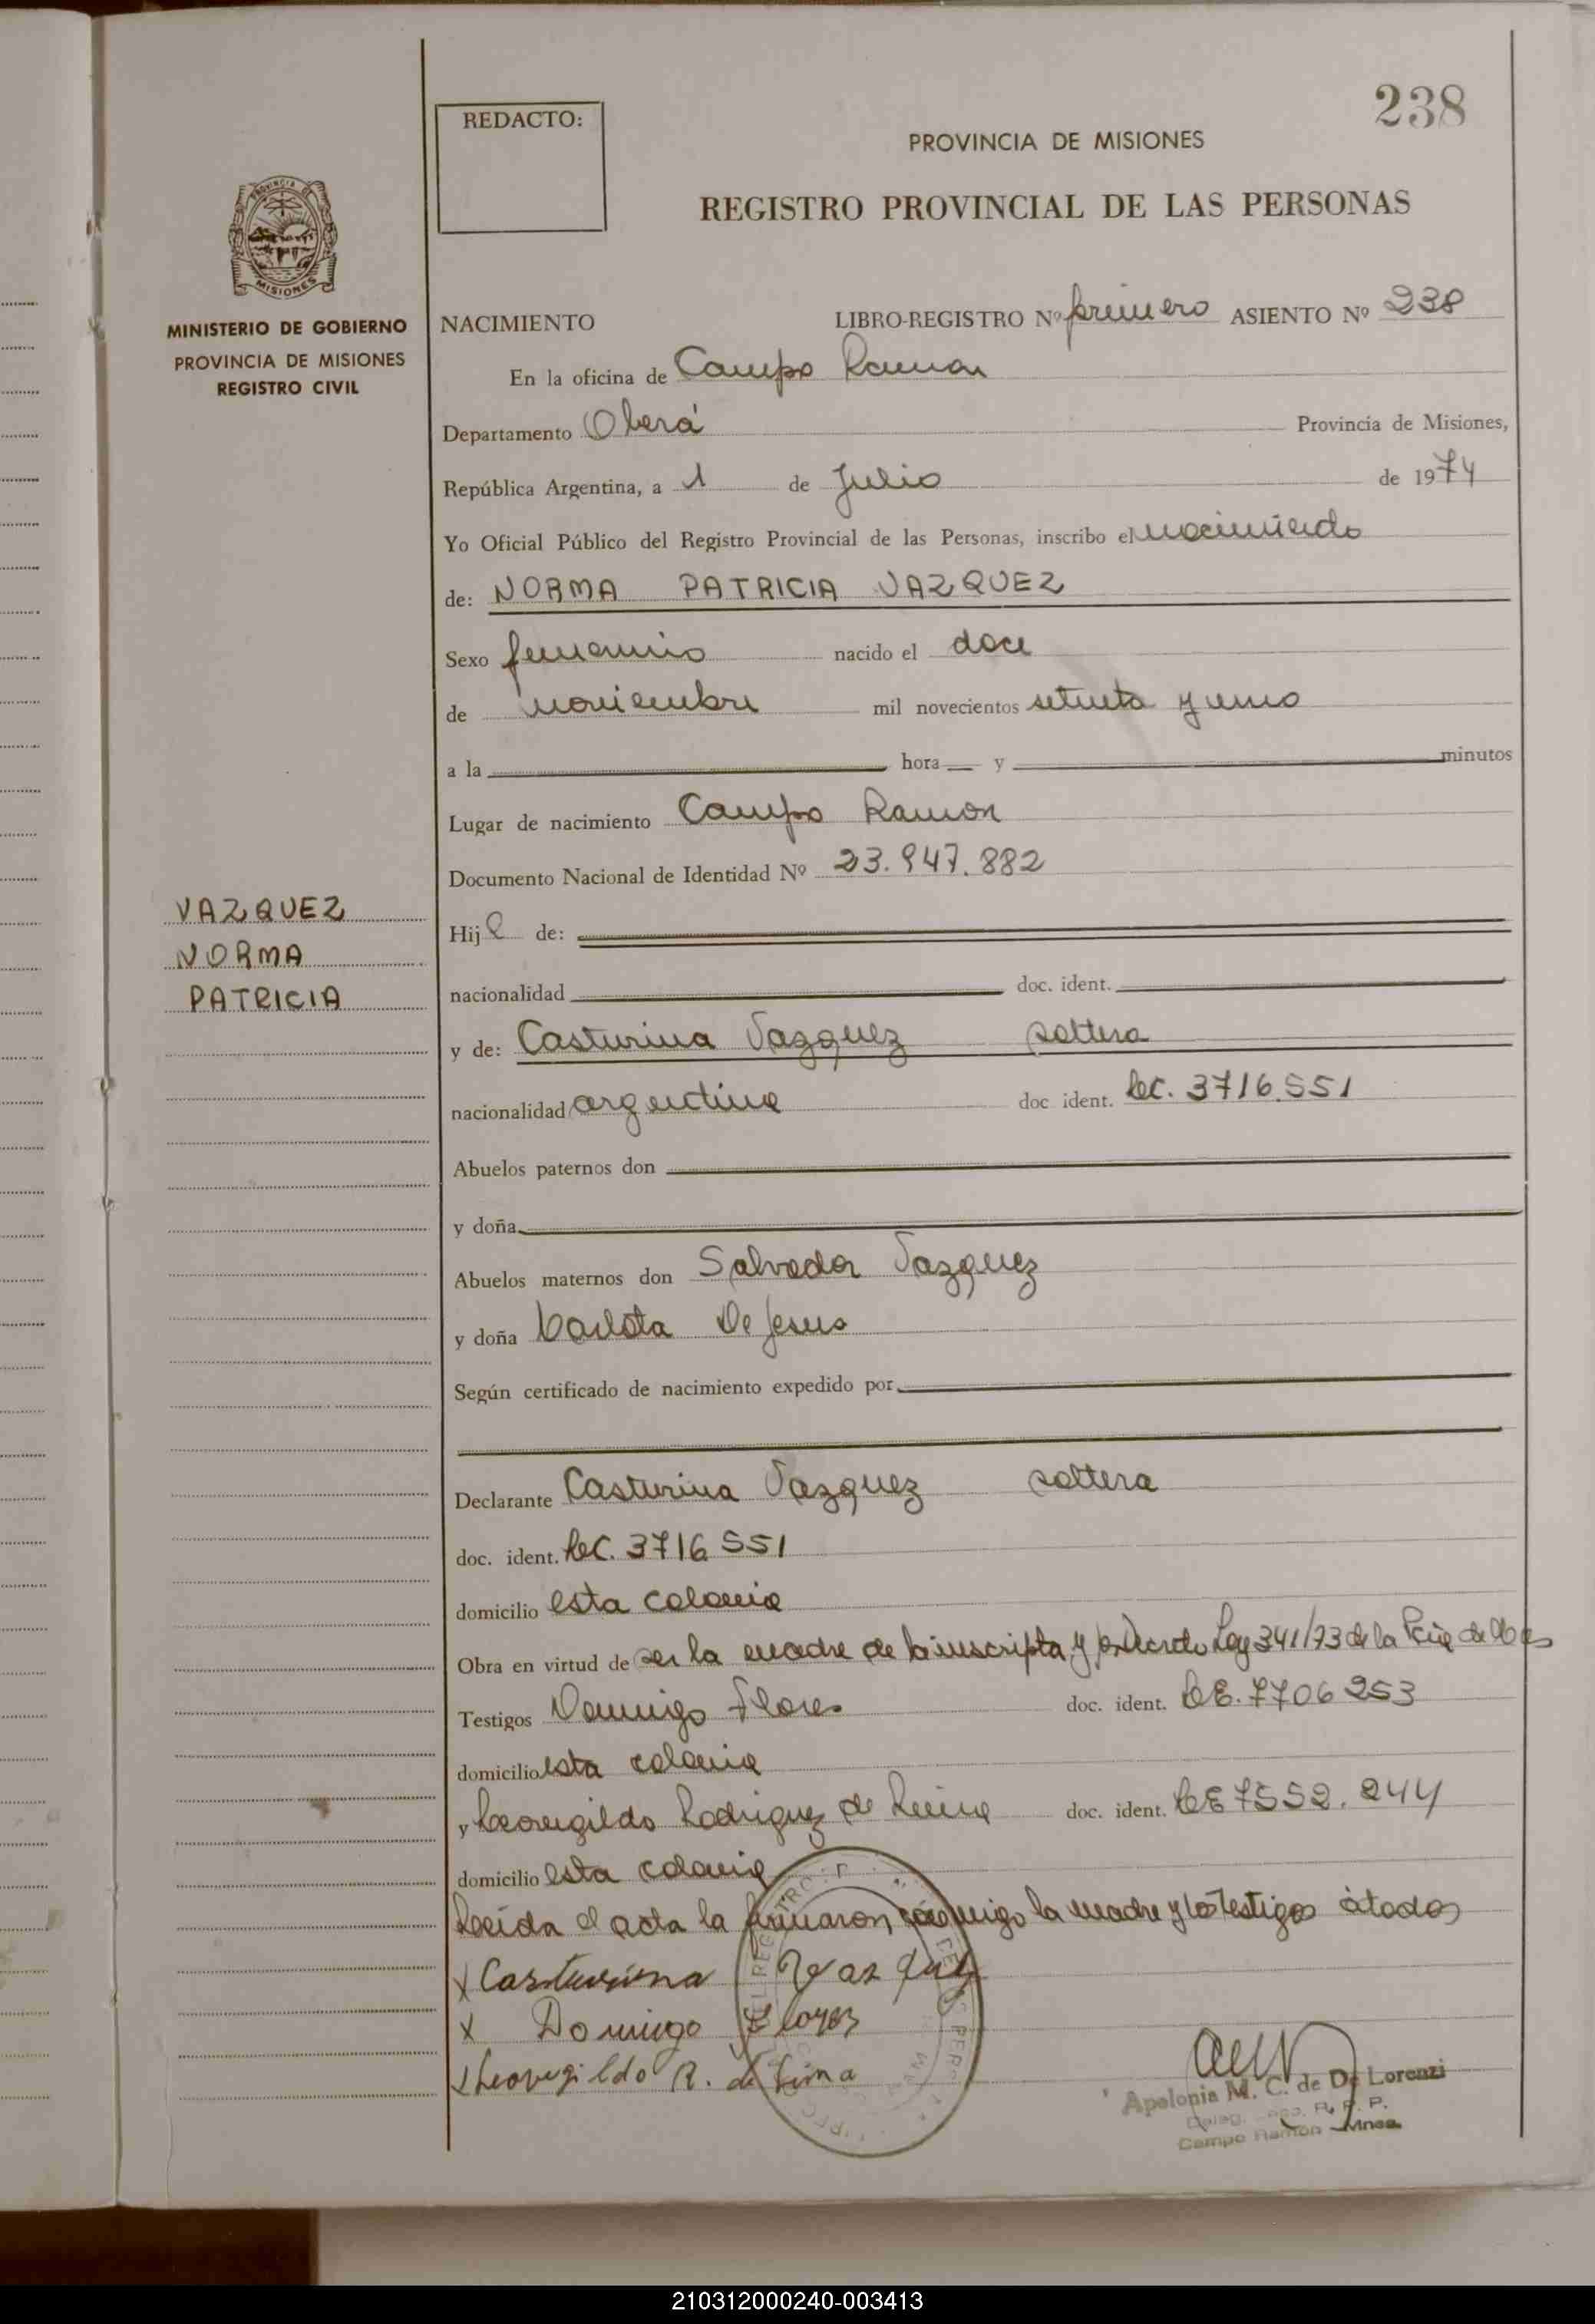 238
REDACTO:
PROVINCIA DE MISIONES
REGISTRO PROVINCIAL DE LAS PERSONAS
MINISTERIO DE GOBIERNO
PROVINCIA DE MISIONES
REGISTRO CIVIL
NACIMIENTO LIBRO-REGISTRO Nº primero ASIENTO Nº 238
En la oficina de Campo Ramon
Departamento Oberá Provincia de Misiones,
República Argentina, a 1 de Julio de 1974
Yo Oficial Público del Registro Provincial de las Personas, inscribo el nacimiento
de: NORMA PATRICIA VAZQUEZ
Sexo femenino nacido el doce
de noviembre mil novecientos setenta y uno
a la hora y minutos
Lugar de nacimiento Campo Ramon
Documento Nacional de Identidad Nº 23.947.882
VAZQUEZ
NORMA
PATRICIA
Hija de:
nacionalidad doc. ident.
y de: Casturina Vazquez soltera
nacionalidad argentina doc ident. LC. 3716.551
Abuelos paternos don
y doña
Abuelos maternos don Salvador Vazquez
y doña Carlota De Jesus
Según certificado de nacimiento expedido por
Declarante Casturina Vazquez soltera
doc. ident. LC. 3716 551
domicilio esta colonia
Obra en virtud de ser la madre de la inscripta y Decreto Ley 341/73 de la Pcia de
Testigos Domingo Flores doc. ident. LE. 7706253
domicilio esta colonia
y Leovegildo Rodriguez de Lima doc. ident. LE 7552.244
domicilio esta colonia
Leída el acta la firmaron conmigo la madre y los Testigos citados
x Casturina Vazquez
x Domingo Flores
x Leovegildo R. de Lima
Apolonia M. C. de De Lorenzi
R. P. P.
Campo Ramon Mnes.
210312000240-003413